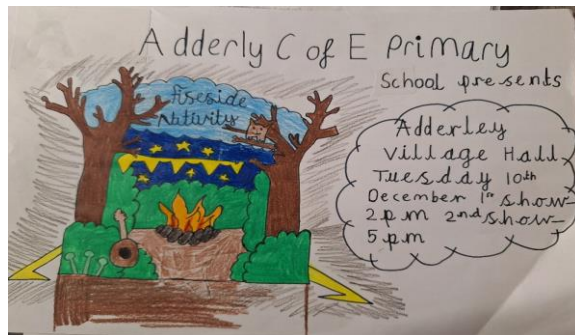 Adderly C of E Primary
School presents
Fireside
Nativity
Adderley
Village Hall
Tuesday 10th
December 1st show
2pm 2nd show
5pm